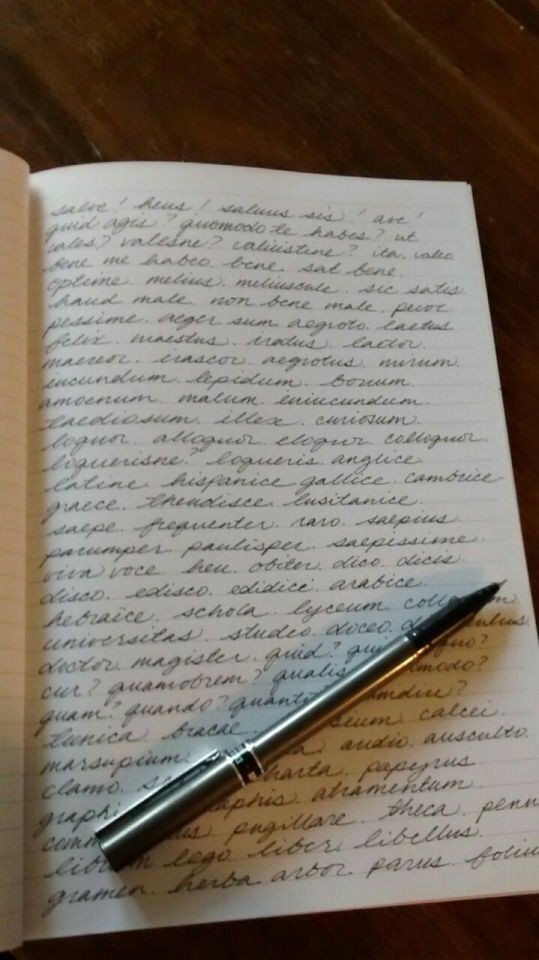 salve! heus! salvus sis! ave!
quid agis? quomodo te habes? ut
vales? valesne? valuistine? ita. valeo.
bene me habeo. bene. sat bene.
optime. melius. meliuscule. sic satis.
haud male. non bene. male. peior.
pessime. aeger sum. aegroto. laetus
felix. maestus. iratus. laetor.
maereor. irascor. aegrotus. mirum.
iucundum. lepidum. bonum.
amoenum. malum. iniucundum.
taediosum. illex. curiosum.
loquor. alloquor. eloquor. colloquor.
loquerisne? loqueris. anglice.
latine. hispanice. gallice. cambrice.
graece. theudisce. lusitanice.
saepe. frequenter. raro. saepius.
parumper. paulisper. saepissime.
viva voce. heu. obiter. dico. dicis.
disco. edisco. edidici. arabice.
hebraïce. schola. lyceum.
universitas. studeo. doceo.
doctor. magister. quid?
cur? quamobrem? qualis
quam? quando?
tunica. bracae. calcei.
marsupium. audio. ausculto.
clamo. charta. papyrus.
atramentum.
pugillare. theca.
lego. liber. libellus.
gramen. herba. arbor. parus.